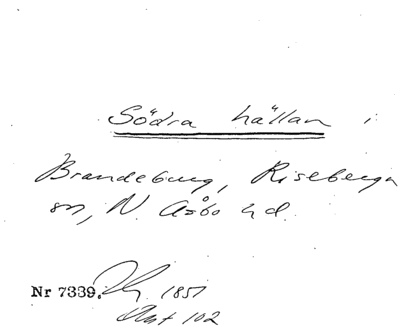 Södra hällan i
Brandeburg, Riseberga
sn, N. Åsbo hd.
Nr 7339. 1851
Akt 102